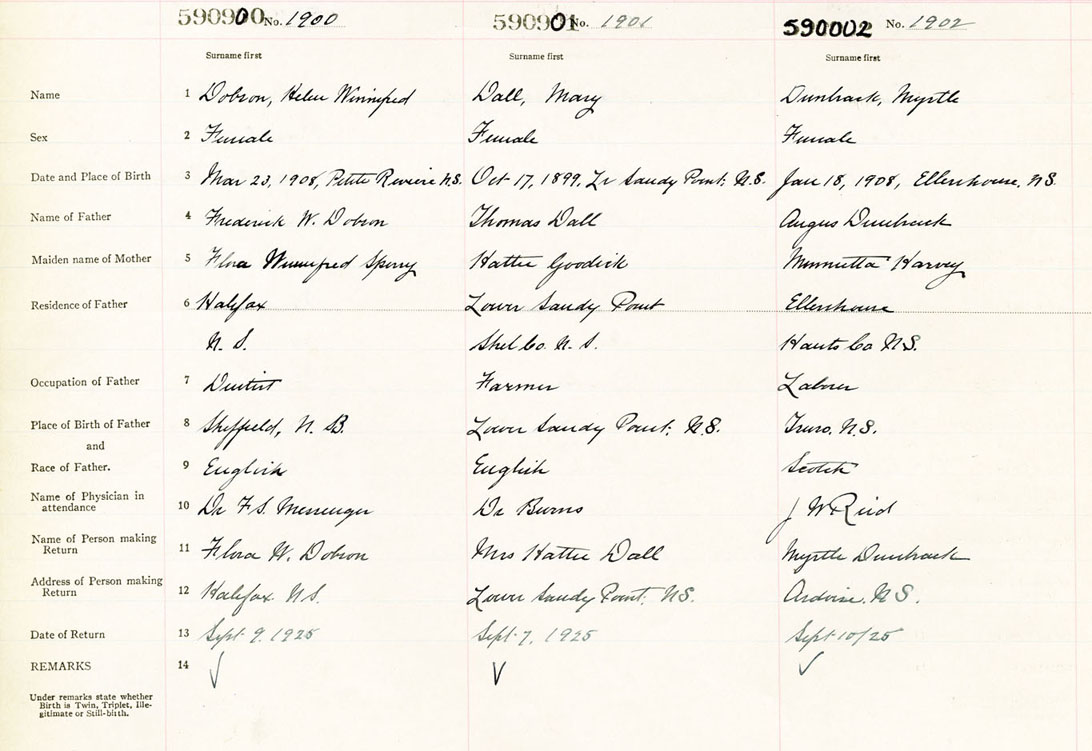 590900 No. 1900 590901 No. 1901 590002 No. 1902
Surname first Surname first Surname first
Name 1 Dobson, Helen Winnifred Dall, Mary Dunbrack, Myrtle
Sex 2 Female Female Female
Date and Place of Birth 3 Mar 23, 1908, Petite Reviere N.S. Oct 17, 1899, Lr Sandy Point. N.S. Jan 18, 1908, Ellershouse, N.S.
Name of Father 4 Frederick W. Dobson Thomas Dall Angus Dunbrack
Maiden name of Mother 5 Flora Winnifred Sperry Hattie Goodick Minnietta Harvey
Residence of Father 6 Halifax Lower Sandy Point Ellershouse
N. S. Shel Co. N. S. Hants Co N.S.
Occupation of Father 7 Dentist Farmer Laborer
Place of Birth of Father 8 Sheffield, N. B. Lower Sandy Point. N.S. Truro. N.S.
and
Race of Father. 9 English English Scotch
Name of Physician in
attendance 10 Dr F.S. Messenger Dr Burns J W Reid
Name of Person making
Return 11 Flora W. Dobson Mrs Hattie Dall Myrtle Dunbrack
Address of Person making
Return 12 Halifax N.S. Lower Sandy Point. N.S. Ardoise. N.S.
Date of Return 13 Sept 9. 1925 Sept 7, 1925 Sept 10/25
REMARKS 14
Under remarks state whether
Birth is Twin, Triplet, Ille-
gitimate or Still-birth.